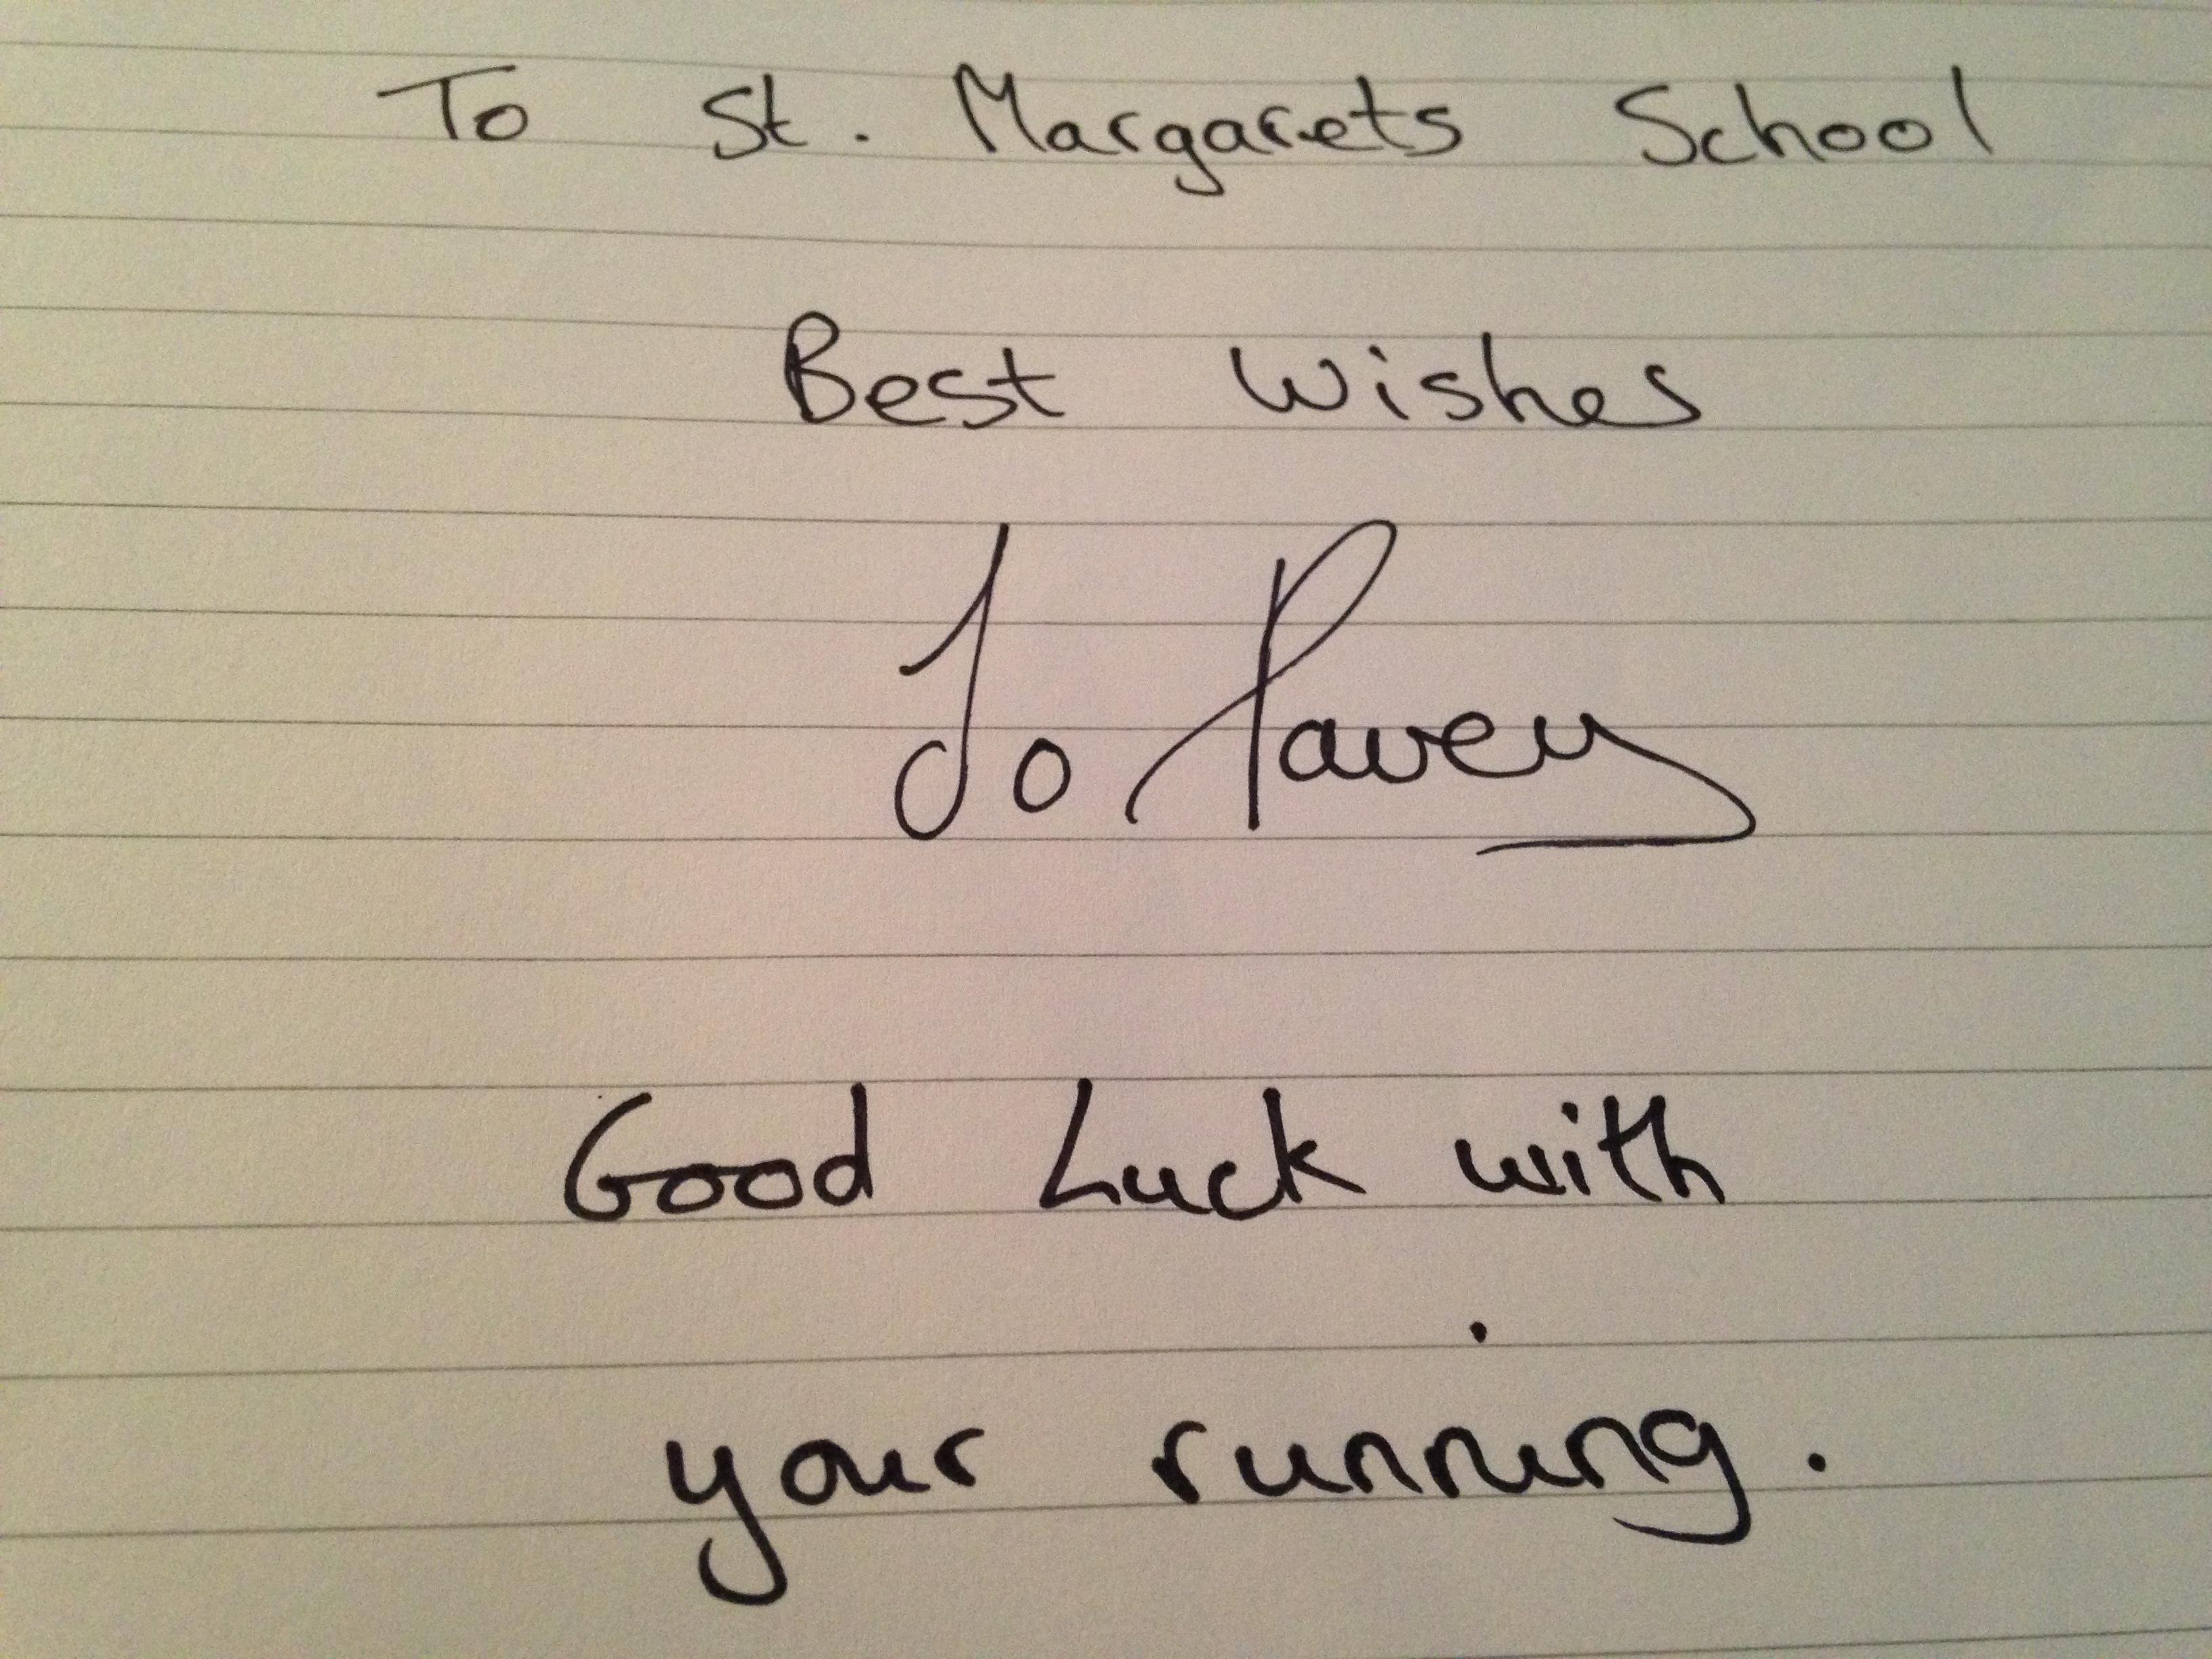 To St. Margarets School
Best Wishes
Jo Pavey
Good Luck with
your running.